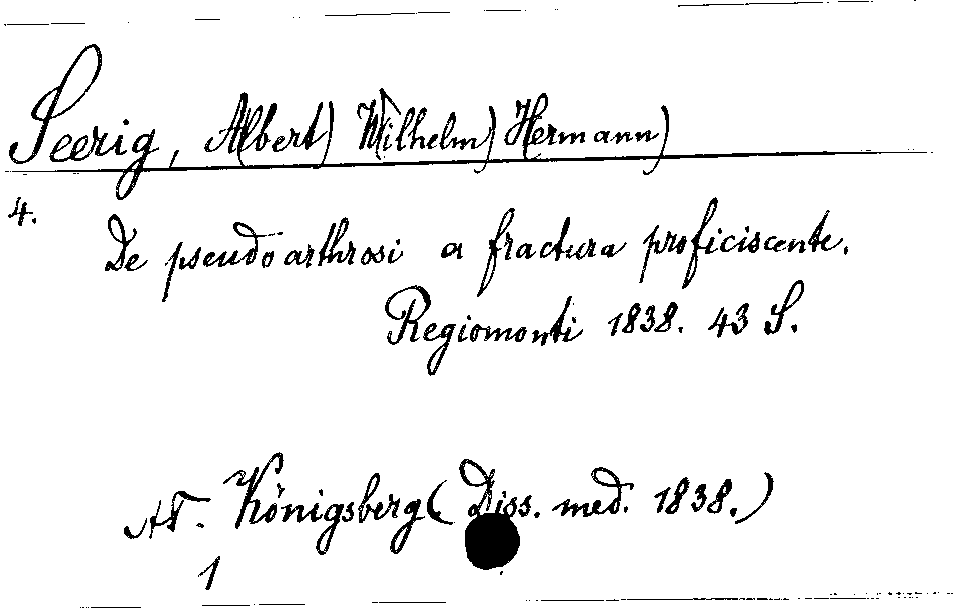 Seerig, Albert) Wilhelm) Hermann)
4.
De pseudoarthrosi a fractura proficiscente.
Regiomonti 1838. 43 S.
AT. Königsberg (Diss. med. 1838.)
1